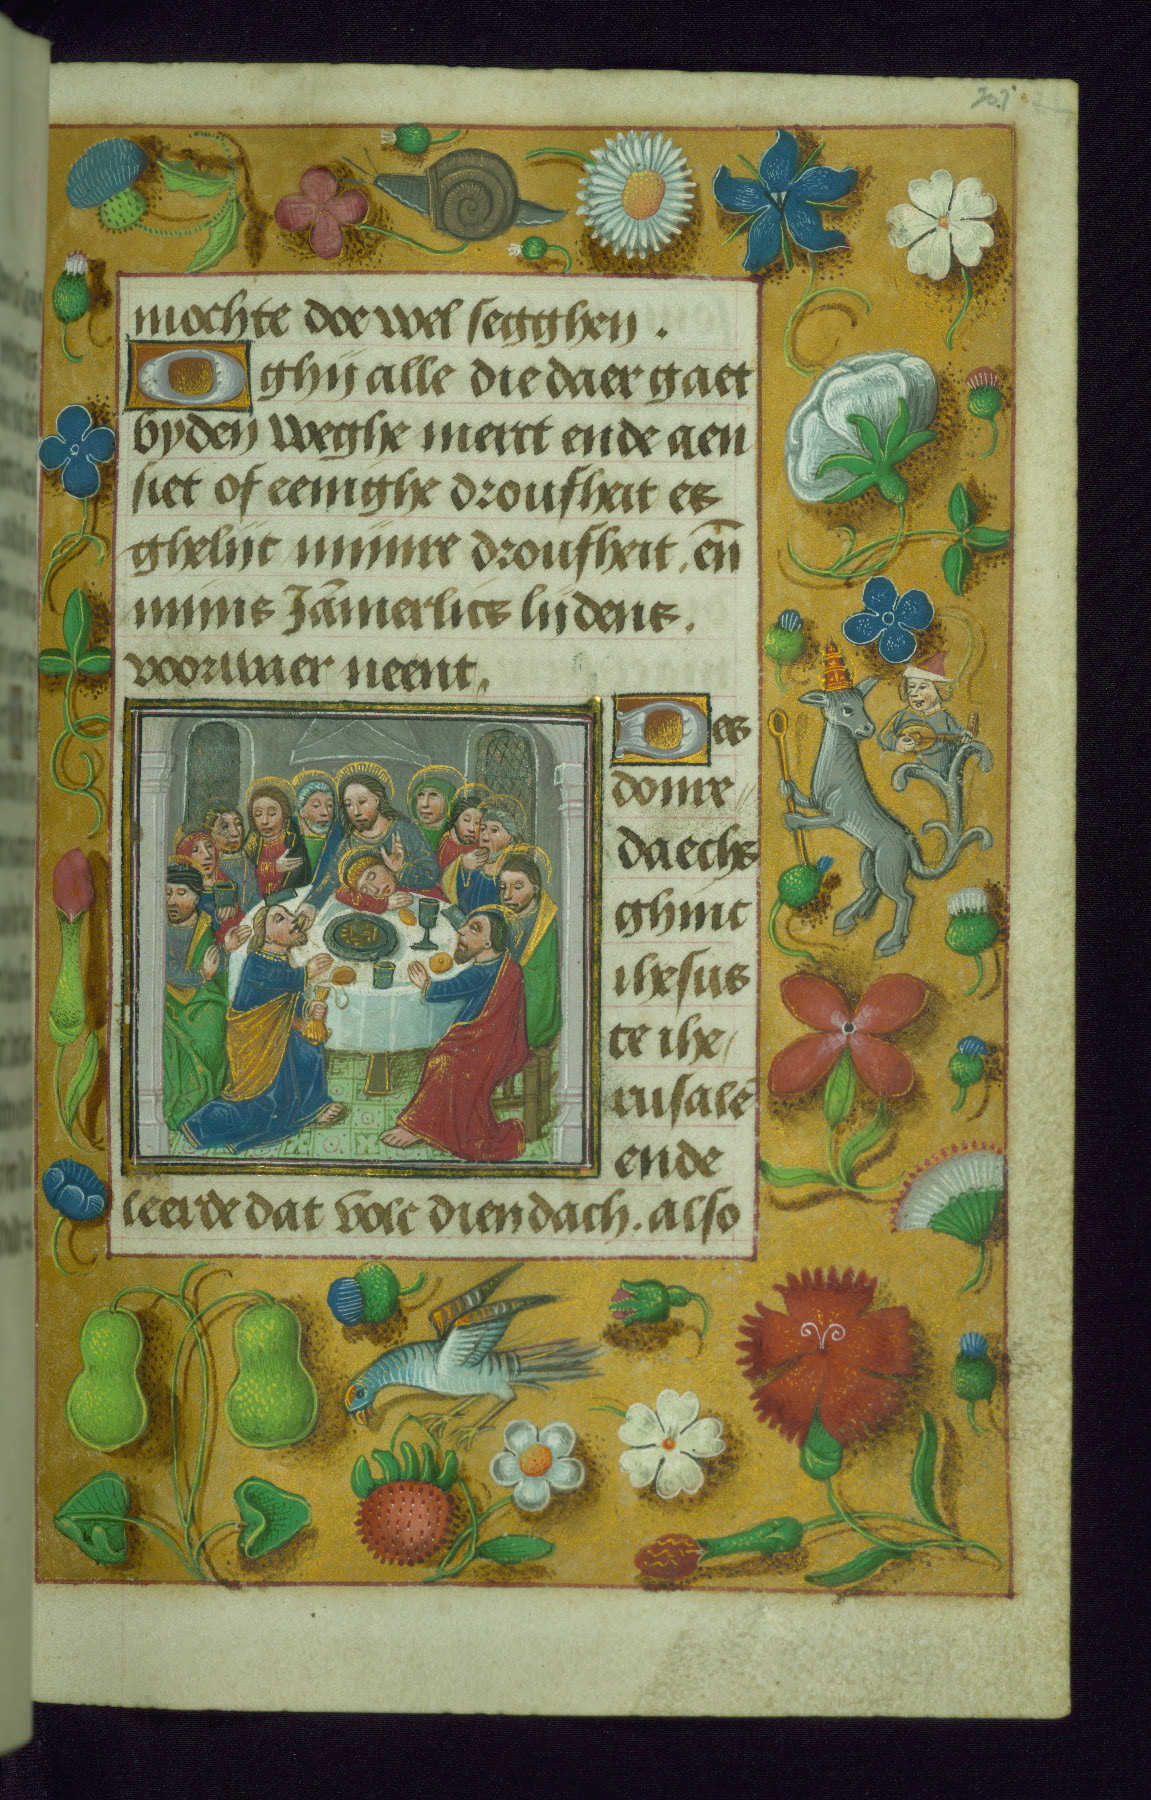 mochte doe wel segghen .
O ghij alle die daer gaet
byden weghe merct ende aen
siet of eenighe droufheit es
ghelijc mijnre droufheit . en̄
mijns Jām̄erlics lijdens .
voorwaer neent .
Des
donre
daechs
ghinc
ihesus
te ihe/
rusalē
ende
leerde dat volc dien dach . also